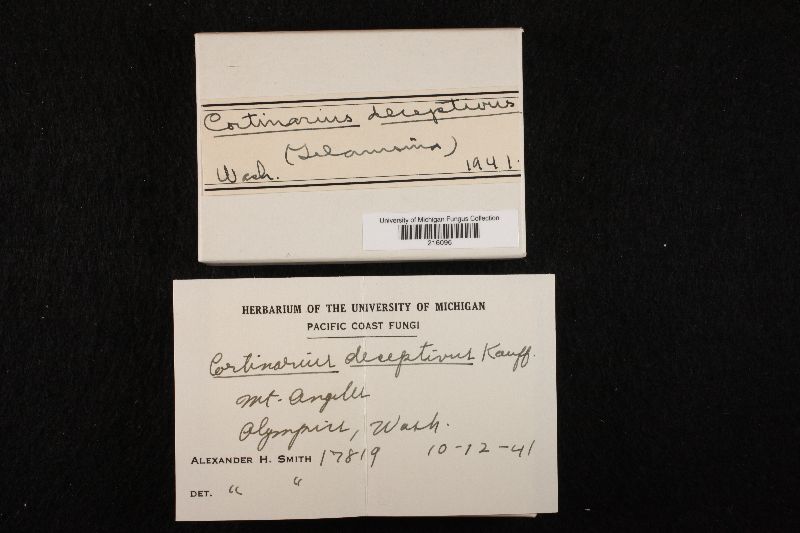 Cortinarius deceptivus
(Telamonia)
Wash. 1941.
University of Michigan Fungus Collection
216096
HERBARIUM OF THE UNIVERSITY OF MICHIGAN
PACIFIC COAST FUNGI
Cortinarius deceptivus Kauff.
Mt. Angeles
Olympics, Wash.
ALEXANDER H. SMITH 17819 10-12-41
DET. " "